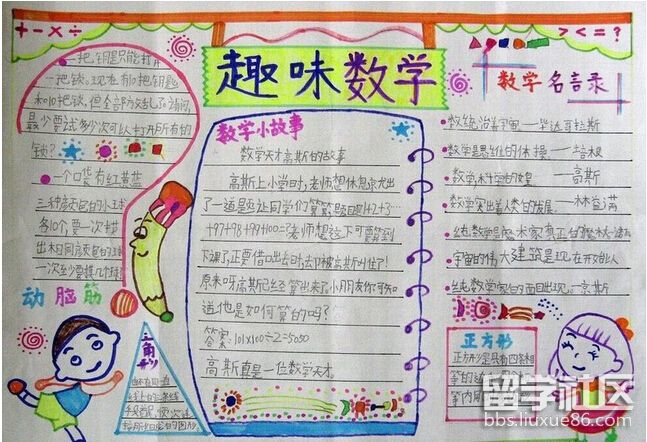 + - × ÷
趣味数学
> < = ?
一把钥匙只能打开
一把锁,现在有10把钥匙
和10把锁,但全部弄乱了,请问,
最少要试多少次可以打开所有的
锁?
一个口袋有红黄蓝
三种颜色的小球
各10个,要一次摸
出相同颜色的球
一次至少要摸几个球?
动脑筋
数学小故事
数学天才高斯的故事
高斯上小学时,老师想休息
了一道题让同学们算算,题目是1+2+3…
+97+98+99+100=?老师想这下可要算到
下课了,正要借口出去时,却被高斯叫住了!
原来呀,高斯已经算出来了,小朋友你可知
道他是如何算的吗?
答案:101×100÷2=5050
高斯真是一位数学天才
数学名言录
数统治着宇宙——毕达哥拉斯
数学是思维的体操——培根
——高斯
数学
宇宙的伟大建筑是现在开始以
纯数学家的面目出现。——高斯
三角形
正方形
正方形是具有四条相
等的边
留学社区
bbs.liuxue86.com